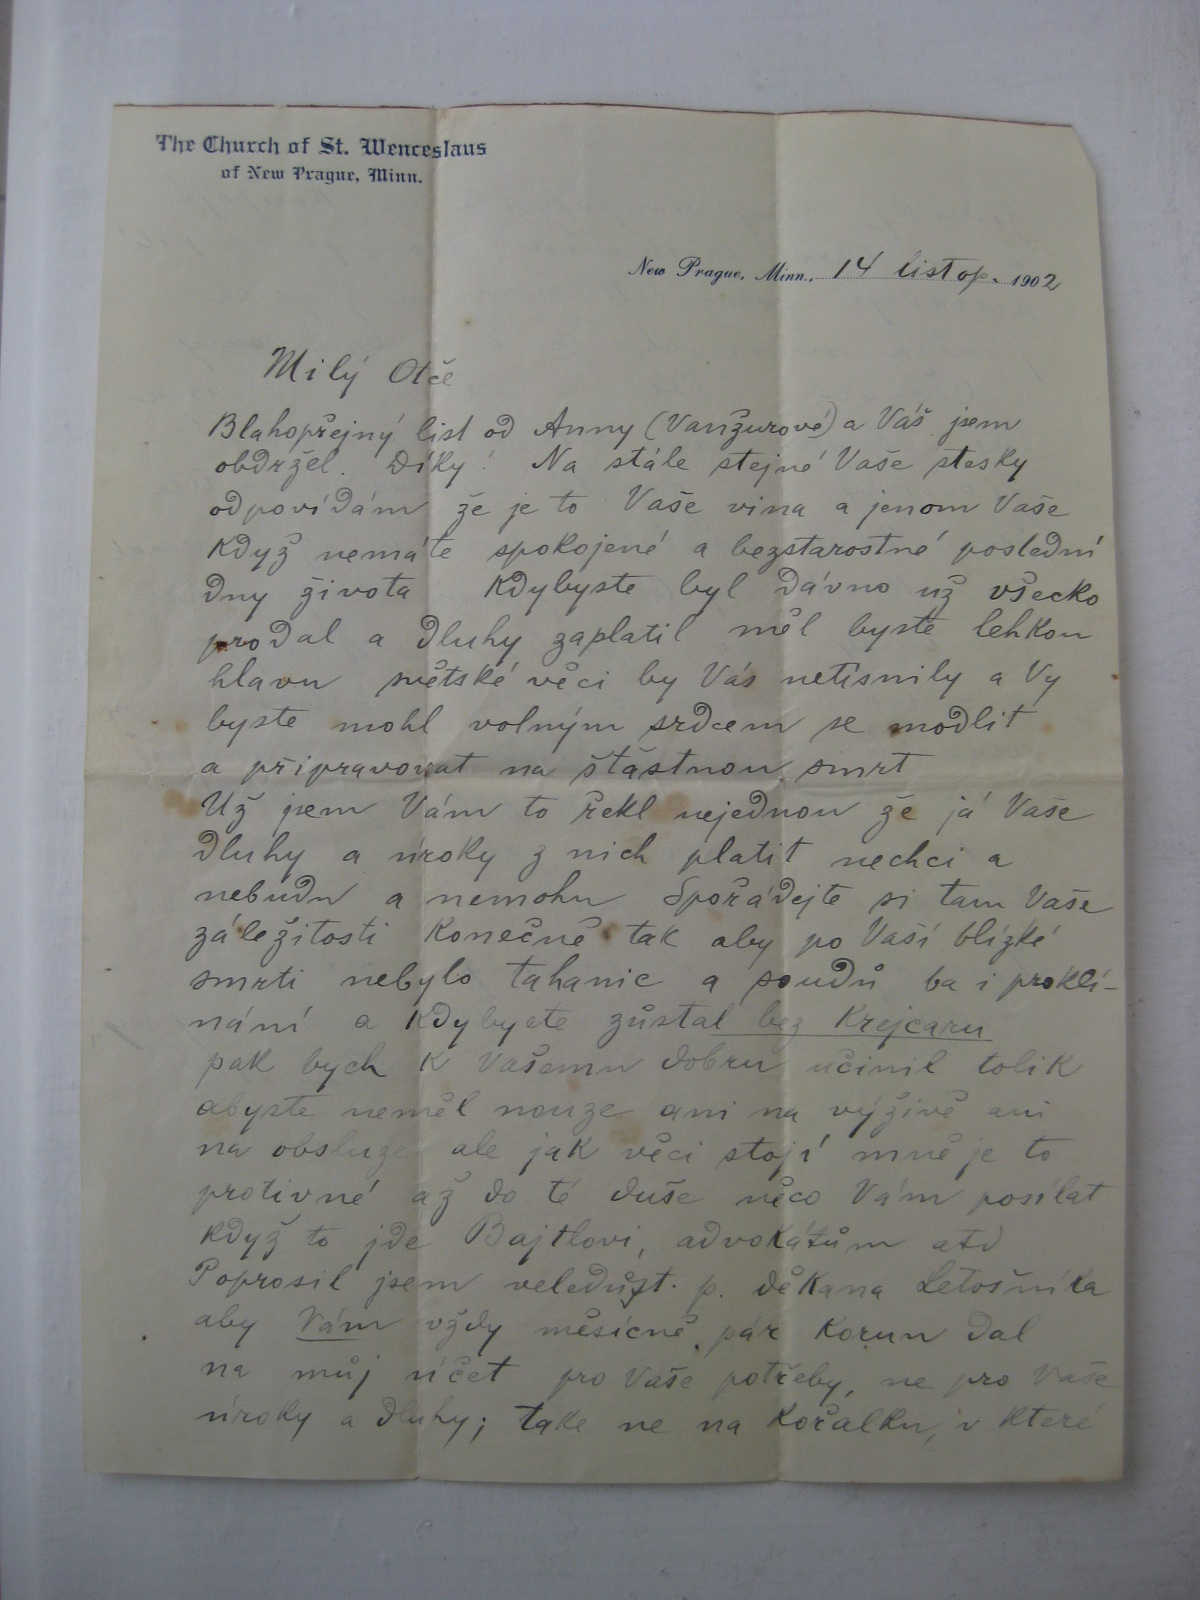 The Church of St. Wenceslaus
of New Prague, Minn.
New Prague, Minn., 14 listop. 1902
Milý Otče
Blahopřejný list od Anny (Vanžurové) a Váš jsem
obdržel. Díky! Na stále stejné Vaše stesky
odpovídám že je to Vaše vina a jenom Vaše
Když nemáte spokojené a bezstarostné poslední
dny života Kdybyste byl dávno už všecko
prodal a dluhy zaplatil měl byste lehkou
hlavu světské věci by Vás netísnily a Vy
byste mohl volným srdcem se modlit
a připravovat na šťastnou smrt
Už jsem Vám to řekl nejednou že já Vaše
dluhy a úroky z nich platit nechci a
nebudu a nemohu Spořádejte si tam Vaše
záležitosti Konečně tak aby po Vaší blízké
smrti nebylo tahanic a soudů ba i proklí-
nání a Kdybyste zůstal bez Krejcaru
pak bych K Vašemu dobru učinil tolik
abyste neměl nouze ani na výživě ani
na obsluze ale jak věci stojí mně je to
protivné až do té duše něco Vám posílat
Když to jde Bajtlovi, advokátům atd
Poprosil jsem veledůst. p. děkana Letošníka
aby Vám vždy měsíčně pár Korun dal
na můj účet pro Vaše potřeby, ne pro Vaše
úroky a dluhy; také ne na Kořalku, v Které